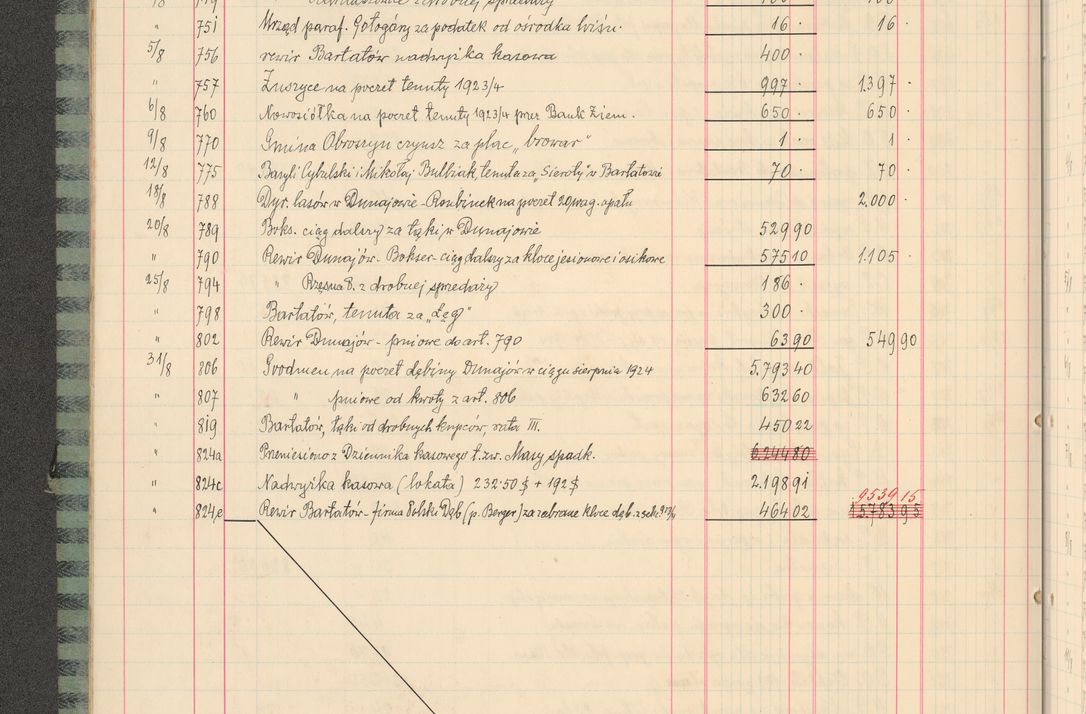 751 Urząd paraf. Gołogóry za podatek od ośrodka 16 · 16 ·
5/8 756 rewir Bartatów nadwyżka kasowa 400 ·
" 757 Zuszyce na poczet tenuty 1923/4 997 · 1397 ·
6/8 760 Nowosiółka na poczet tenuty 1923/4 przez Bank Ziem. 650 · 650 ·
9/8 770 Gmina Obroszyn czynsz za plac „browar" 1 · 1 ·
12/8 775 Bazyli Cybulski i Mikołaj tenuta za „Sieroty" w Bartatowie 70 · 70 ·
18/8 788 Dyr. lasów w Dunajowie - na poczet 20 wag. opału 2.000 ·
20/8 789 Boks. ciąg dalszy za łąki w Dunajowie 529 90
" 790 Rewir Dunajów - Bokser - ciąg dalszy za kloce jesionowe i osikowe 575 10 1.105 ·
25/8 794 " Rzęsna P. z drobnej sprzedaży 186 ·
" 798 Bartatów, tenuta za „Łęg" 300 ·
" 802 Rewir Dunajów - pniowe do art. 790 63 90 549 90
31/8 806 Goodmen na poczet dębiny Dunajów w ciągu sierpnia 1924 5.793 40
" 807 " pniowe od kwoty z art. 806 632 60
" 819 Bartatów, łąki od drobnych kupców, rata III. 450 22
" 824a Przeniesiono z Dziennika kasowego t. zw. Masy spadk. 6.244 80
" 824c Nadwyżka kasowa (lokata) 232·50 $ + 192 $ 2.198 91
9539 15
" 824,e Rewir Bartatów - firma Polski Dąb (p. Berger) za zebrane kloce dęb. z 464 02 15.783 95